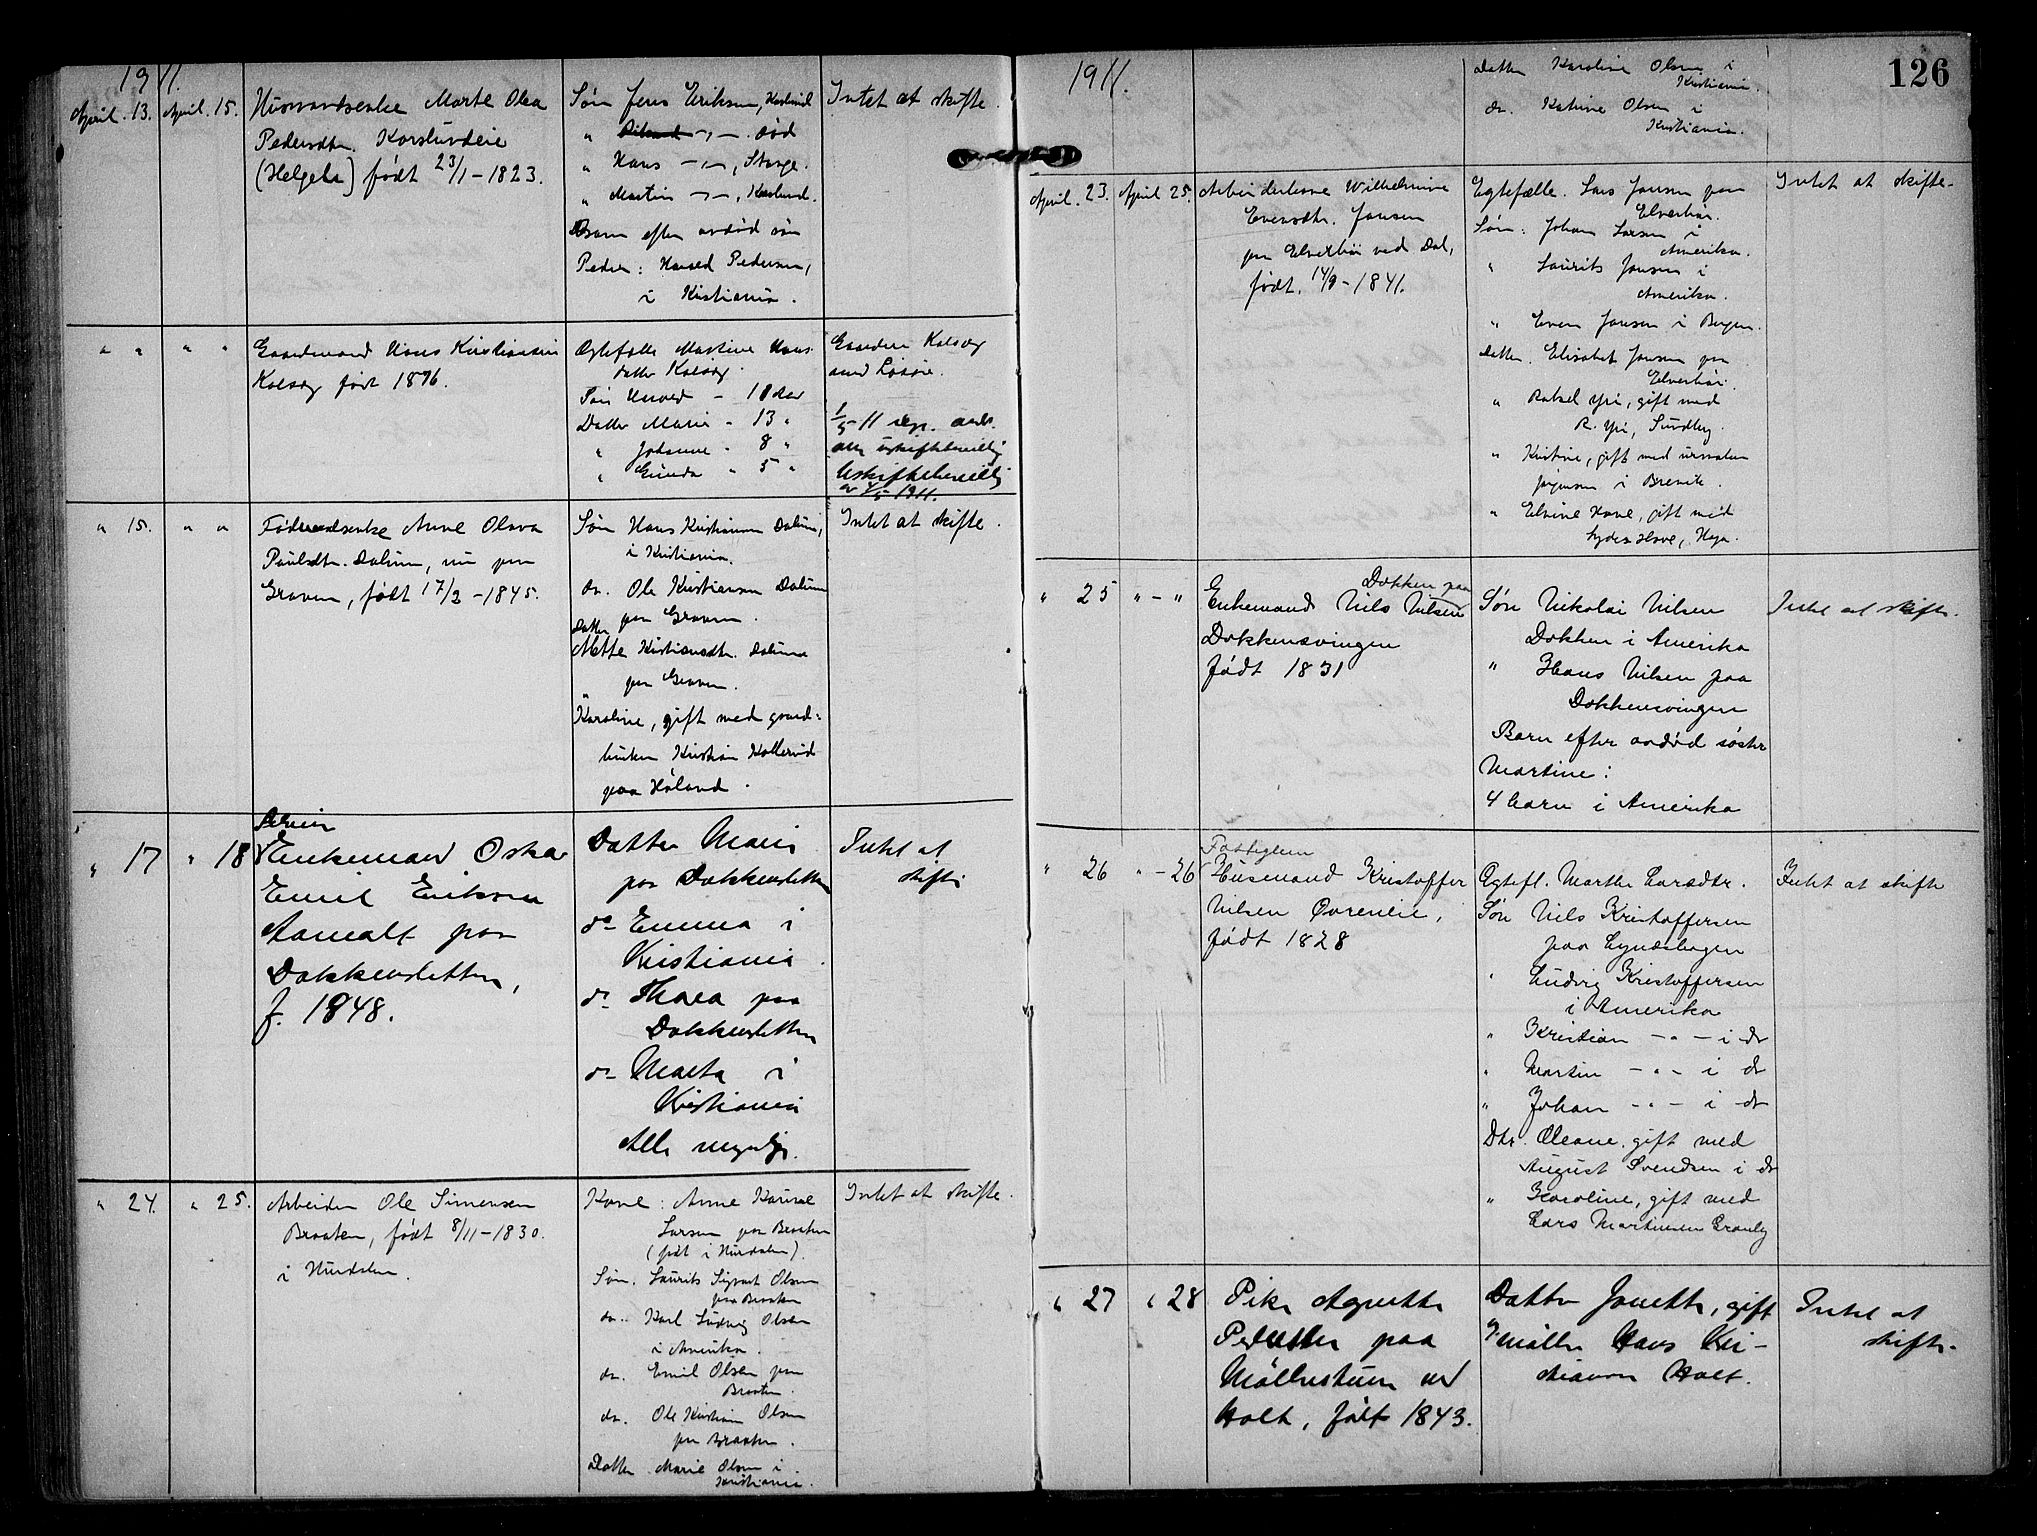 1911.
April 13. April 15. Husmandsenke Marte Olea
Pedersdtr. Korslundeie
(Helgebr) født 23/1 - 1823.
Søn Jens Eriksen, Korslund
" død
" Hans -„-, Stange.
" Martin -„-, Korslund.
Barn efter avdød søn
Peder: Harald Pedersen,
i Kristiania.
Intet at skifte.
" " " " Gaardmand Hans Kristiansen
Kolsæg født 1876.
Egtefælle Martine Hans-
datter Kolsæg.
Søn Harald - 10 aar
Datter Marie - 13 "
" Johanne - 8 "
" Gunda " 5 "
Gaarden Kolsæg
med Løsøre.
1/5 11 
om uskiftebevilling
Uskiftebevilling
av 4/5 1911.
" 15. " " Føderaadsenke Anne Olava
Paulsdtr. Dalum, nu paa
Graven, født 17/2 - 1845.
Søn Hans Kristiansen Dalum,
i Kristiania.
do. Ole Kristiansen Dalum
paa Graven.
Datter
Mette Kristiansdtr. Dalum
paa Graven.
"
Karoline, gift med gaard-
bruker Kristian Kollerud
paa Høland.
Intet at skifte.
" 17 " 18 Enkemand Oskar
Emil Eriksen
Aamalt paa
Dokkensletten,
f. 1848.
Datter Marie
paa Dokkensletten
do Emma i
Kristiania.
do Thora paa
Dokkensletten
do Marta i
Kristiania
Alle myndig.
Intet at
skifte
" 24. " 25. Arbeider Ole Simensen
Braaten, født 8/11 - 1830.
i Hurdalen.
Kone: Anne Karine
Larsen paa Braaten
(født i Hurdalen).
Søn. Laurits Sigvart Olsen
paa Braaten
do. Karl Ludvig Olsen
i Amerika.
do. Emil Olsen paa
Braaten.
do. Ole Kristian Olsen
paa Braaten.
Datter Marie Olsen i
Kristiania.
Intet at skifte.
1911.
126
Datter Karoline Olsen i
Kristiania.
do. Katrine Olsen i
Kristiania.
April 23. April 25. Arbeiderkone Wilhelmine
Evensdtr. Jansen
paa Elverhøi ved Dal,
født 14/9 - 1841.
Egtefælle. Lars Jansen paa
Elverhøi.
Søn: Johan Larsen i
Amerika.
" Laurits Jansen i
Amerika.
" Even Jansen i Bergen.
Datter. Elisabet Jansen paa
Elverhøi.
" Rakel Yri, gift med
R. Yri, Sundby.
" Kristine, gift med urmaker
Jørgensen i Brevik.
" Elvine Hove, gift med
Hove,
Intet at skifte.
" 25 " - " Enkemand Nils Nilsen
Dokken paa
Dokkensvingen
født 1831
Søn Nikolai Nilsen
Dokken i Amerika
" Hans Nilsen paa
Dokkensvingen
Barn efter avdød søster
Martine:
4 barn i Amerika
Intet at skifte.
" 26 " - 26 Fattiglem
Husmand Kristoffer
Nilsen Øvreneie,
født 1828
Egtefl. Marthe Larsdtr.
Søn Nils Kristoffersen
paa Lyndshagen
" Ludvig Kristoffersen
i Amerika
" Kristian -"- i do
" Martin -"- i do
" Johan -"- i do
Dtr. Oleane, gift med
August Svendsen i do
" Karoline, gift med
Lars Martinsen Granly
Intet at skifte
" 27 " 28 Pike Agnette
Pedersdtr paa
Møllerstuen ved
Holt, født 1843.
Datter Janette, gift
m. møller Hans Kri-
stiansen Holt.
Intet at
skifte.